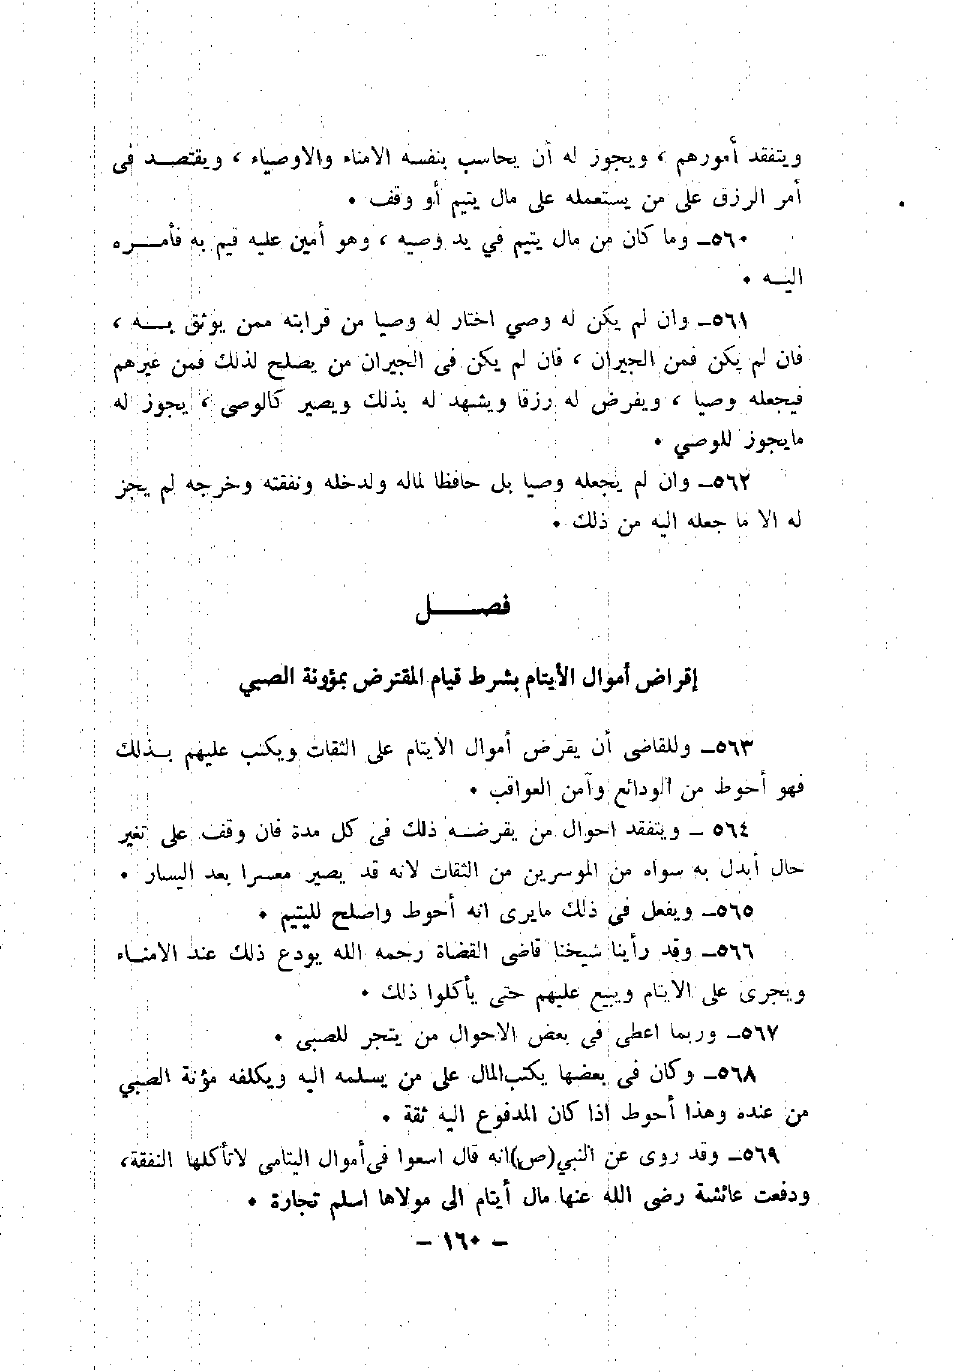 ويتفقد أمورهم ، ويجوز له أن يحاسب بنفسه الامناء والاوصياء ، ويقتصـد فى
أمر الرزق على من يستعمله على مال يتيم أو وقف .
٥٦٠ــ وما كان من مال يتيم في يد وصيه ، وهو أمين عليه قيم به فأمــره
اليـه .
٥٦١ــ وان لم يكن له وصي اختار له وصيا من قرابته ممن يوثق بــه ،
فان لم يكن فمن الجيران ، فان لم يكن فى الجيران من يصلح لذلك فمن غيرهم
فيجعله وصيا ، ويفرض له رزقا ويشهد له بذلك ويصير كالوصى ، يجوز له
مايجوز للوصي .
٥٦٢ــ وان لم يجعله وصيا بل حافظا لماله ولدخله ونفقته وخرجه لم يجز
له الا ما جعله اليه من ذلك .
فصــــل
إقراض أموال الأيتام بشرط قيام المقترض بمؤونة الصبي
٥٦٣ــ وللقاضى أن يقرض أموال الايتام على الثقات ويكتب عليهم بـذلك
فهو أحوط من الودائع وآمن العواقب .
٥٦٤ ــ ويتفقد احوال من يقرضـه ذلك فى كل مدة فان وقف على تغير
حال أبدل به سواه من الموسرين من الثقات لانه قد يصير معسرا بعد اليسار .
٥٦٥ــ ويفعل في ذلك مايرى انه أحوط واصلح لليتيم .
٥٦٦ــ وقد رأينا شيخنا قاضى القضاة رحمه الله يودع ذلك عند الامنـاء
ويجرى على الايتام ويبيع عليهم حتى يأكلوا ذلك .
٥٦٧ــ وربما اعطى فى بعض الاحوال من يتجر للصبى .
٥٦٨ــ وكان فى بعضها يكتب المال على من يسلمه اليه ويكلفه مؤنة الصبي
من عنده وهذا أحوط اذا كان المدفوع اليه ثقة .
٥٦٩ــ وقد روى عن النبي (ص) انه قال اسعوا فى أموال اليتامى لاتأكلها النفقة،
ودفعت عائشة رضى الله عنها مال أيتام الى مولاها اسلم تجارة .
ــ ١٦٠ ــ